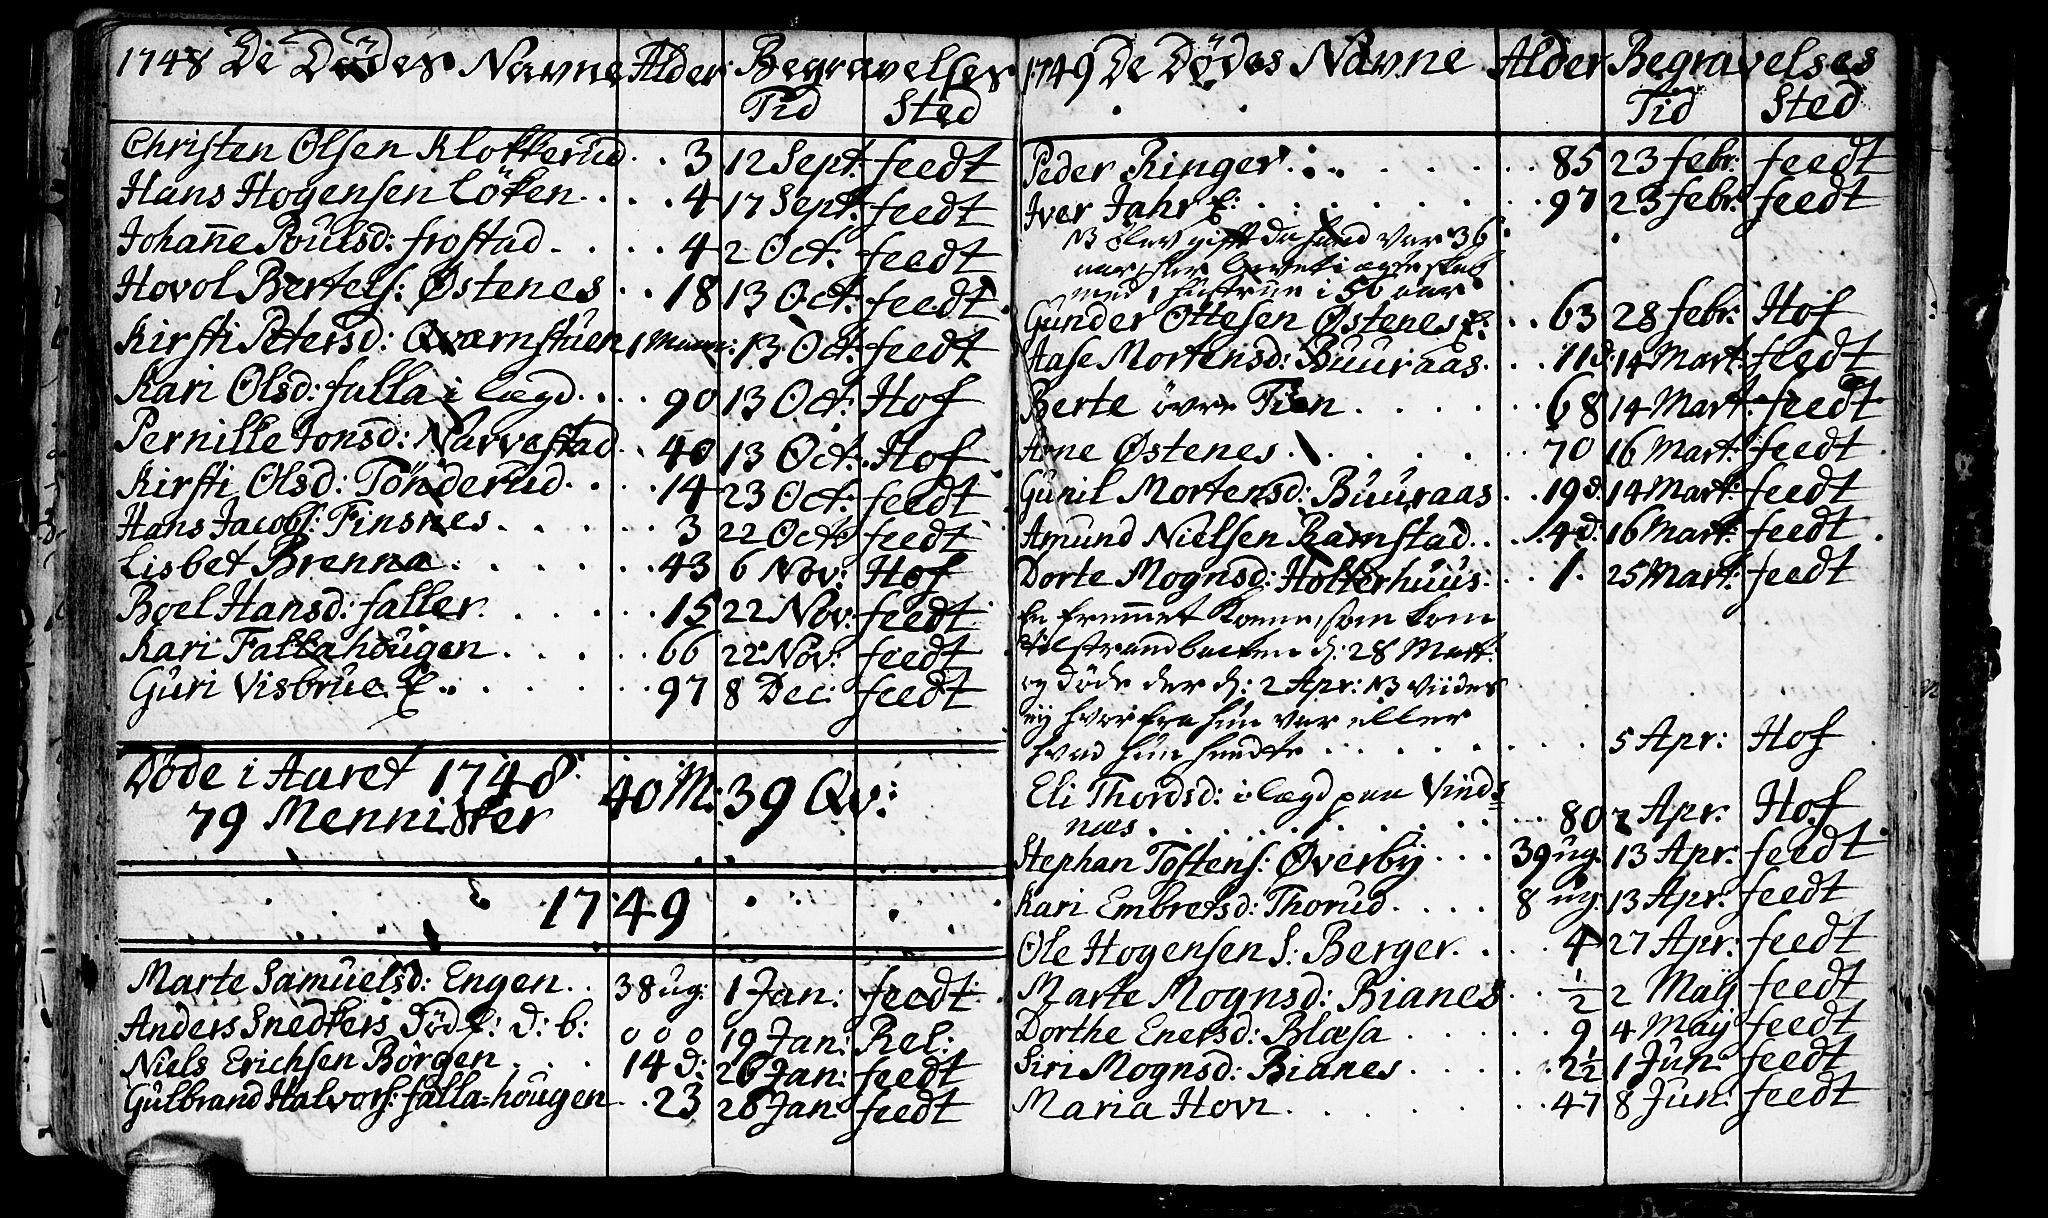 1748 De Dødes Navne Alder Begravelses
Tid Sted
Christen Olsen Klokkerud 3 12 Sept: feedt
Hans Hogensen Löken 4 17 Sept: feedt
Johañe Poulsd: frostad 4 2 Oct: feedt
Hovol Bertels: Østenes 18 13 Oct: feedt
Kirsti Petersd: Qværnstuen 1 Maan: 13 Oct: feedt
Kari Olsd: falla i lægd 90 13 Oct: Hof
Pernille Jonsd: Narvestad 40 13 Oct: Hof
Kirsti Olsd: Tönderud 14 23 Oct: feedt
Hans Jacobs: Finsnes 3 22 Octb feedt
Lisbet Brenna 43 6 Nov: Hof
Boel Hansd: faller 15 22 Nov: feedt
Kari Fallahougen 66 22 Nov: feedt
Guri Visbrue 97 8 Dec: feedt
Døde i Aaret 1748
79 Mennisker 40 M: 39 Qv:
1749
Marte Samuelsd: Engen 38 ug: 1 Jan: feedt
Anders Snedkers Död f: d: b: 0 0 0 19 Jan: Rel:
Niels Erichsen Börgen 14 d: 26 Jan: feedt
Gulbrand Halvors: falla-hougen 23 26 Jan: feedt
1749 De Dødes Navne Alder Begravelses
Tid Sted
Peder Ringer 85 23 febr: feedt
Iver Jahr 97 23 febr: feedt
NB blev gift da hand var 36
aar, levet i ægteskab
med 1 hustrue i 50 aar
Gunder Ottesen Østenes 63 28 febr: Hof
Aase Mortensd: Buuraas 11 d: 14 Mart: feedt
Berte övre Tien 68 14 Mart: feedt
Arne Østenes 70 16 Mart: feedt
Gunil Mortensd: Buuraas 19 d: 14 Mart: feedt
Amund Nielsen Ramstad 4 d: 16 Mart: feedt
Dorte Mognsd: Holterhuus 1 25 Mart: feedt
En fremmet Konne, som kom
til strandbacken d: 28 Mart:
og døde der d: 2 Apr: NB viides
ey hvorfra hun var eller
hvad hun hendte 5 Apr: Hof
Eli Thordsd: i lægd paa Vind=
næs 80 2 Apr: Hof
Stephan Tostens: Øverby 39 ug: 13 Apr: feedt
Kari Embretsd: Thorud 8 ug: 13 Apr: feedt
Ole Hogensen S: Berger 4 27 Apr: feedt
Marte Mognsd: Bianes 1/2 2 May feedt
Dorthe Enersd: Blæsa 9 4 May feedt
Siri Mognsd: Bianes 2 1/2 1 Jun: feedt
Maria Hovi 47 8 Jun: feedt